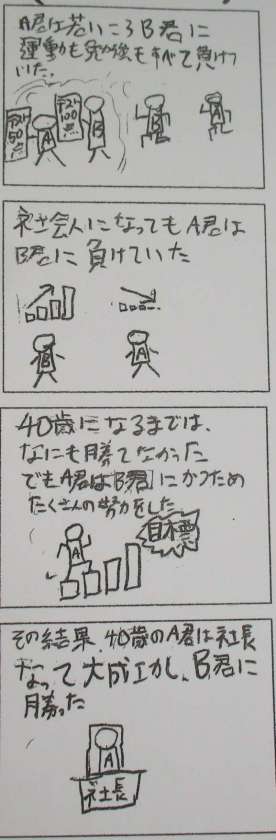 A君は若いころB君に
運動も勉強もすべて負けて
いた。
テスト50点
テスト100点
A
B
B
A
社会人になってもA君は
B君に負けていた
B
A
40歳になるまでは、
なにも勝てなかった
でもA君はB君にかつため
たくさんの努力をした
目標
A
その結果、40歳のA君は社長
になって大成功し、B君に
勝った
A
社長